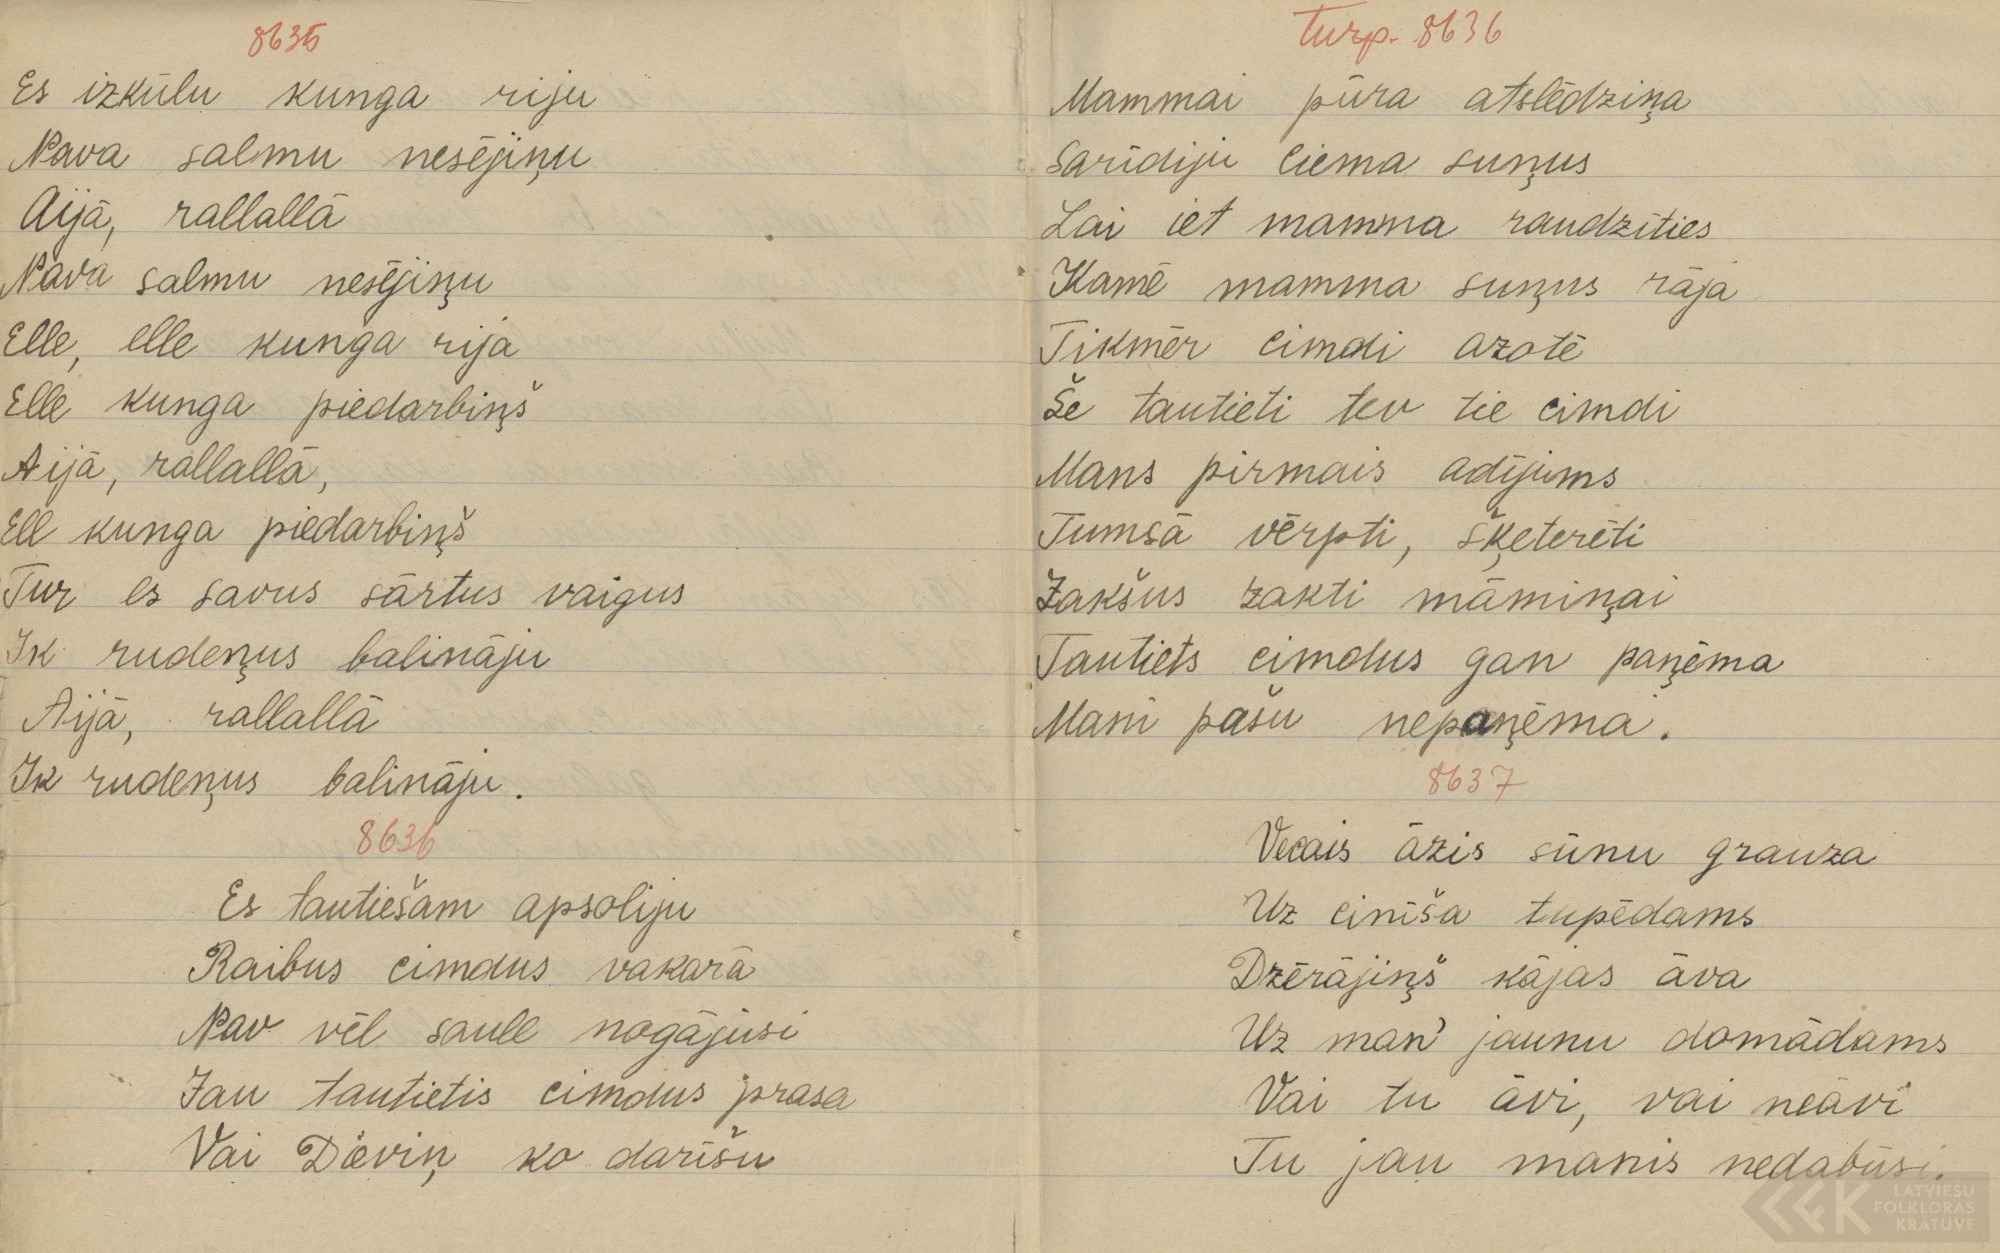 8635
Es izkūlu kunga riju
Nava salmu nesējiņu
Aijā, rallallā
Nava salmu nesējiņu
Elle, elle kunga rija
Elle kunga piedarbiņš
Aijā, rallallā,
Ell kunga piedarbiņš
Tur es savus sārtus vaigus
Ik rudeņus balināju
Aijā, rallallā
Ik rudeņus balināju.
8636
Es tautiešam apsoliju
Raibus cimdus vakarā
Nav vēl saule nogājusi
Jau tautietis cimdus prasa
Vai Dieviņ ko darīšu
turp. 8636
Mammai pūra atslēdziņa
Sarīdiju ciema suņus
Lai iet mamma raudzīties
Kamē mamma suņus rāja
Tikmēr cimdi azotē
Še tautieti tev tie cimdi
Mans pirmais adījums
Tumsā vērpti, šķeterēti
Zakšus zakti māmiņai
Tautiets cimdus gan paņēma
Mani pašu nepaņēma.
8637
Vecais āzis sūnu grauza
Uz cinīša tupēdams
Dzērājiņš kājas āva
Uz man' jaunu domādams
Vai tu āvi, vai neāvi
Tu jau manis nedabūsi.
LATVIEŠU
FOLKLORAS
KRĀTUVE